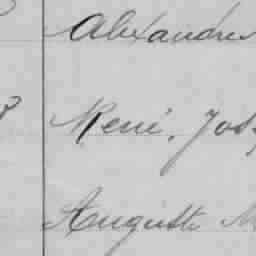 Alexandre
René, Jos
Auguste M